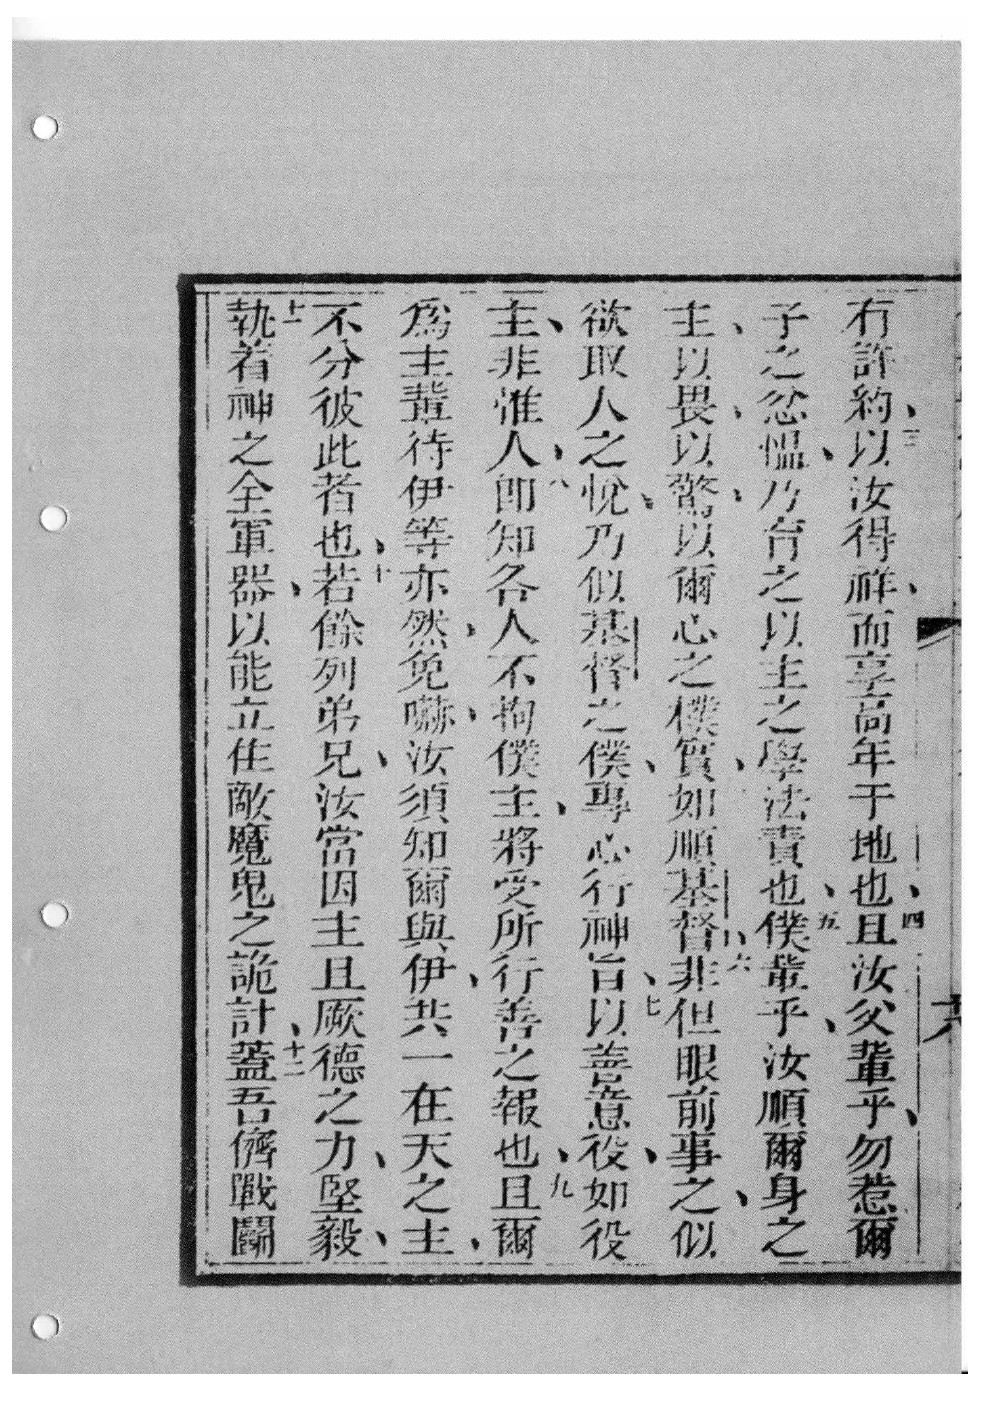 有許約、三以汝得祥、而享高年于地也、四且汝父輩乎、勿惹爾
子之忿慍、乃育之以主之學法責也、五僕輩乎、汝順爾身之
主、以畏、以驚、以爾心之樸實、如順基督、六非但眼前事之、似
欲取人之悅、乃似基督之僕、專心行神旨、七以善意役、如役
主、非惟人、八即知各人不拘僕主、將受所行善之報也、九且爾
為主輩待伊等亦然、免嚇、汝須知爾與伊、共一在天之主、
不分彼此者也、十若餘列弟兄、汝當因主且厥德之力、堅毅、
十一執着神之全軍器、以能立住敵魔鬼之詭計、十二蓋吾儕戰鬬
六